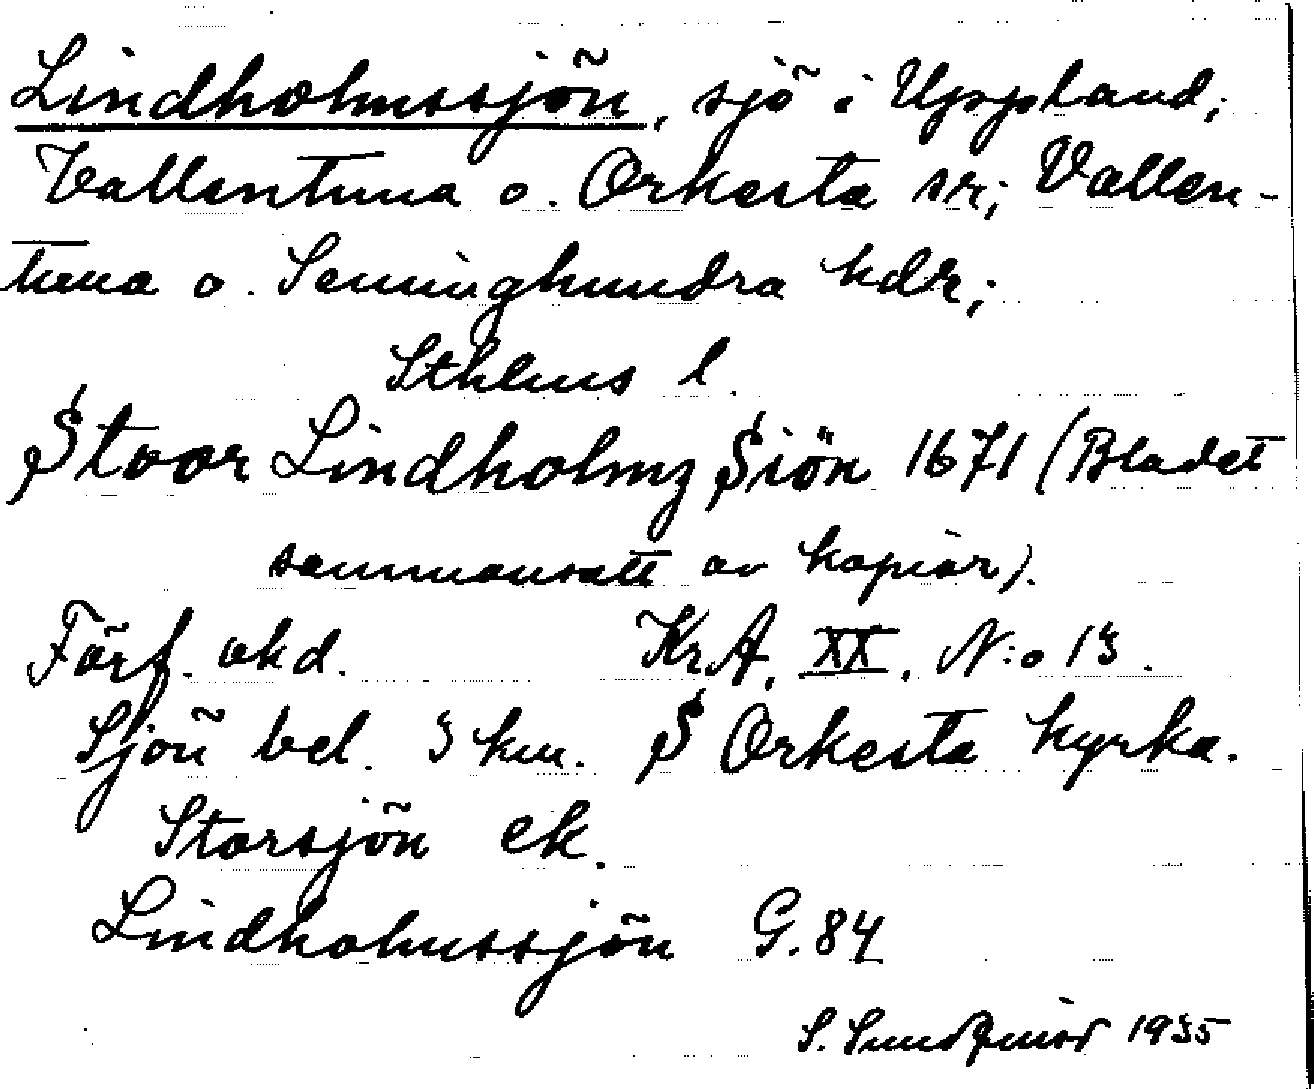 Lindholmssjön, sjö i Uppland;
Vallentuna o. Orkesta snr; Vallen-
tuna o. Seminghundra hdr;
Sthlms l.
Stoor Lindholmz Siön 1671 (Bladet
sammansatt av kopior).
Förf. okd. KrA, XX, N:o 13.
Sjön bel. 3 km. S Orkesta kyrka.
Storsjön ek.
Lindholmssjön G. 84
S. Sundquist 1935